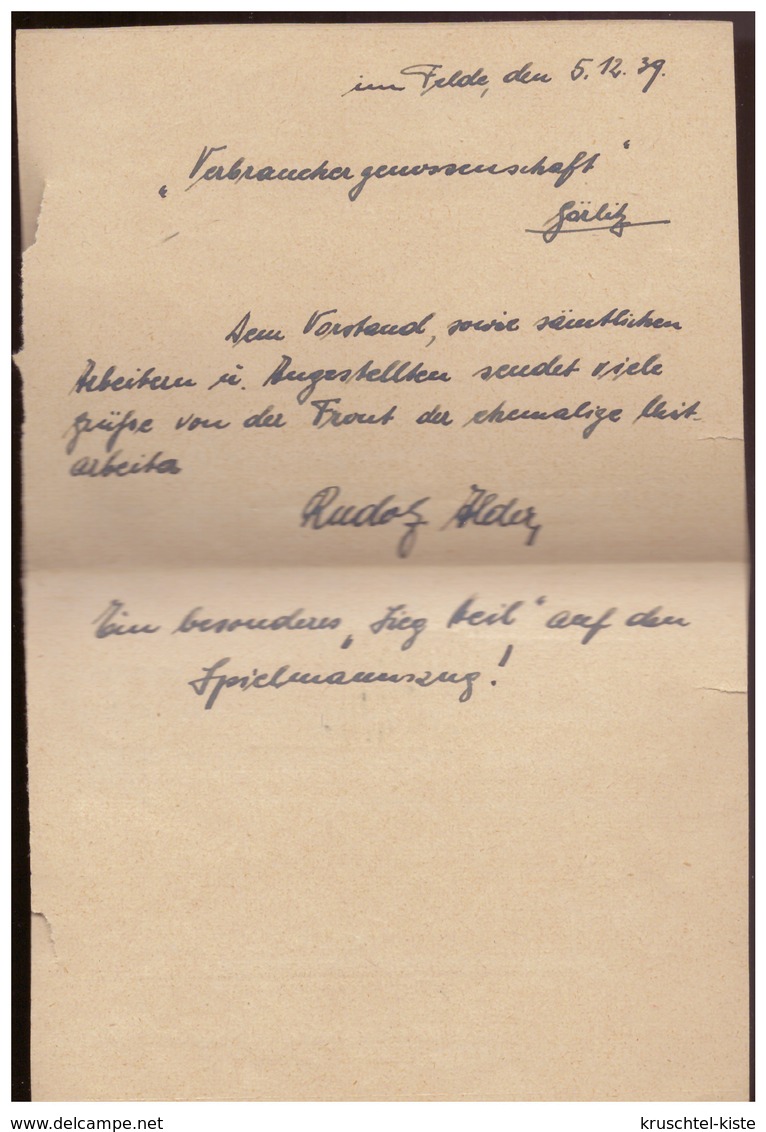 im Felde, den 5.12.39.
„Verbrauchergenossenschaft"
Görlitz
Dem Vorstand, sowie sämtlichen
Arbeitern u. Angestellten sendet viele
grüße von der Front der ehemalige Mit-
arbeiter
Rudolf Alder,
Ein besonderes „Sieg Heil" auf den
Spielmannszug!
www.delcampe.net
kruschtel-kiste